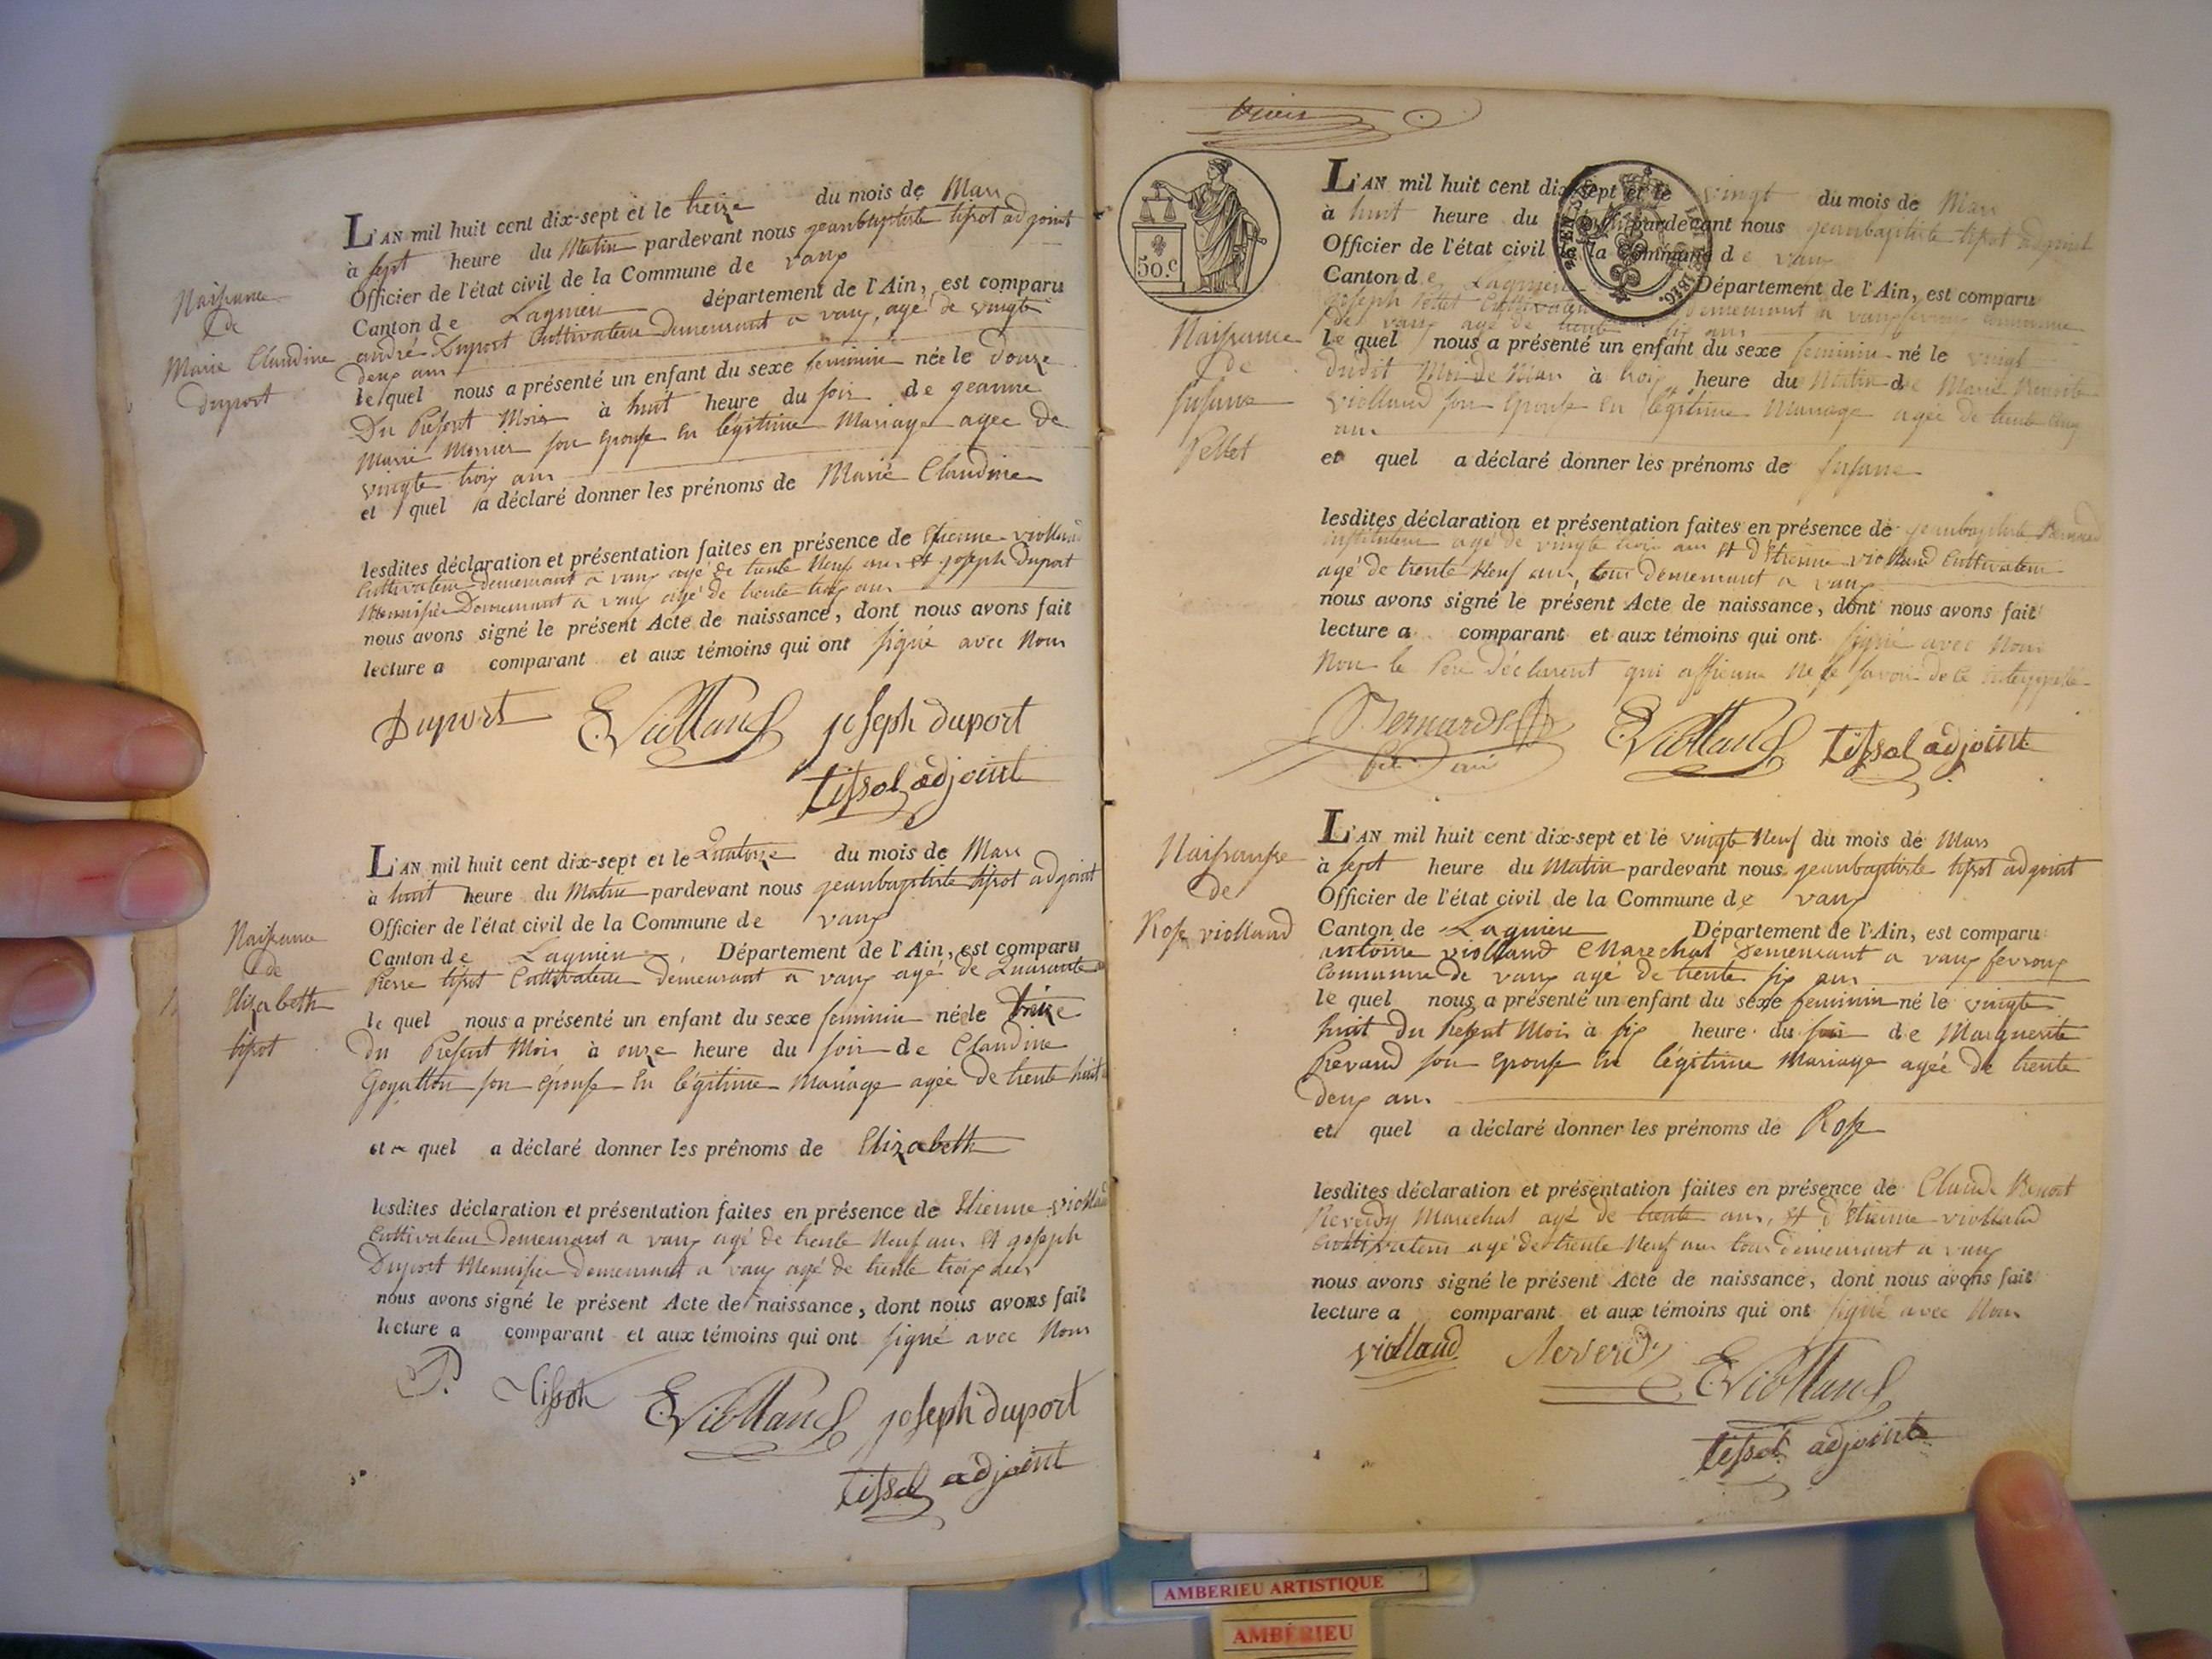 Naissance
de
Marie Claudine
duport
L'AN mil huit cent dix-sept et le treize du mois de Mars
à sept heure du Matin pardevant nous jeanbaptiste tissot adjoint
Officier de l'état civil de la Commune de vaux
Canton de Lagnieu département de l'Ain, est comparu
andré Duport Cultivateur demeurant a vaux, agé de vingte
deux ans
le quel nous a présenté un enfant du sexe feminin née le douze
Du Présent Mois à huit heure du soir de jeanne
Marie Monier son Epouse En légitime Mariage agée de
vingte trois ans
et quel a déclaré donner les prénoms de Marie Claudine
lesdites déclaration et présentation faites en présence de Etienne violland
Cultivateur demeurant a vaux agé de trente Neuf ans Et joseph Duport
Menuisier Demeurant a vaux agé de trente trois ans
nous avons signé le présent Acte de naissance, dont nous avons fait
lecture a comparant et aux témoins qui ont signé avec Nous
Duport E. Violland joseph duport
tissot adjoint
Naissance
de
Elizabeth
tissot
L'AN mil huit cent dix-sept et le Quatorze du mois de Mars
à huit heure du Matin pardevant nous jeanbaptiste tissot adjoint
Officier de l'état civil de la Commune de vaux
Canton de Lagnieu, Département de l'Ain, est comparu
Pierre tissot Cultivateur demeurant a vaux agé de Quarante
le quel nous a présenté un enfant du sexe feminin née le treize
du Présent Mois à onze heure du soir de Claudine
Goyatton son épouse En légitime Mariage agée de trente huit
et quel a déclaré donner les prénoms de Elizabeth
lesdites déclaration et présentation faites en présence de Etienne violland
Cultivateur Demeurant a vaux agé de trente Neuf ans Et joseph
Duport Menuisier Demeurant a vaux agé de trente trois ans
nous avons signé le présent Acte de naissance, dont nous avons fait
lecture a comparant et aux témoins qui ont signé avec Nous
P. tissot E. Violland joseph duport
tissot adjoint
50.c
Naissance
de
Susane
Pellet
L'AN mil huit cent dix-sept et le vingt du mois de Mars
à huit heure du pardevant nous jeanbaptiste tissot adjoint
Officier de l'état civil de la Commune de vaux
Canton de Lagnieu Département de l'Ain, est comparu
joseph Pellet Cultivateur demeurant a vaux fevroux commune
de vaux agé de trente six ans
le quel nous a présenté un enfant du sexe feminin né le vingt
dudit Mois de Mars à trois heure du Matin de Marie Benoite
violland son Epouse En légitime Mariage agée de trente cinq
ans
et quel a déclaré donner les prénoms de Susane
lesdites déclaration et présentation faites en présence de jeanbaptiste Bernard
instituteur agé de vingte trois ans Et d'Etienne violland Cultivateur
agé de trente Neuf ans, tous demeurant a vaux
nous avons signé le présent Acte de naissance, dont nous avons fait
lecture a comparant et aux témoins qui ont signé avec Nous
Non le Pere Déclarent qui affirme ne le savoir de ce interpellé
Bernard E. Violland tissot adjoint
Naissanse
de
Rose violland
L'AN mil huit cent dix-sept et le vingte Neuf du mois de Mars
à sept heure du Matin pardevant nous jeanbaptiste tissot adjoint
Officier de l'état civil de la Commune de vaux
Canton de Lagnieu Département de l'Ain, est comparu
antoine violland Marechal Demeurant a vaux fevroux
Commune de vaux agé de trente six ans
le quel nous a présenté un enfant du sexe feminin né le vingte
huit du Présent Mois à six heure du soir de Marguerite
Revand son Epouse En légitime Mariage agée de trente
deux ans
et quel a déclaré donner les prénoms de Rose
lesdites déclaration et présentation faites en présence de Claude Benoit
Reverdy Marechal agé de trente ans, Et d'Etienne violland
Cultivateur agé de trente Neuf ans tous demeurant a vaux
nous avons signé le présent Acte de naissance, dont nous avons fait
lecture a comparant et aux témoins qui ont signé avec Nous
violland Reverdy E. Violland
tissot adjoint
AMBERIEU ARTISTIQUE
AMBÉRIEU